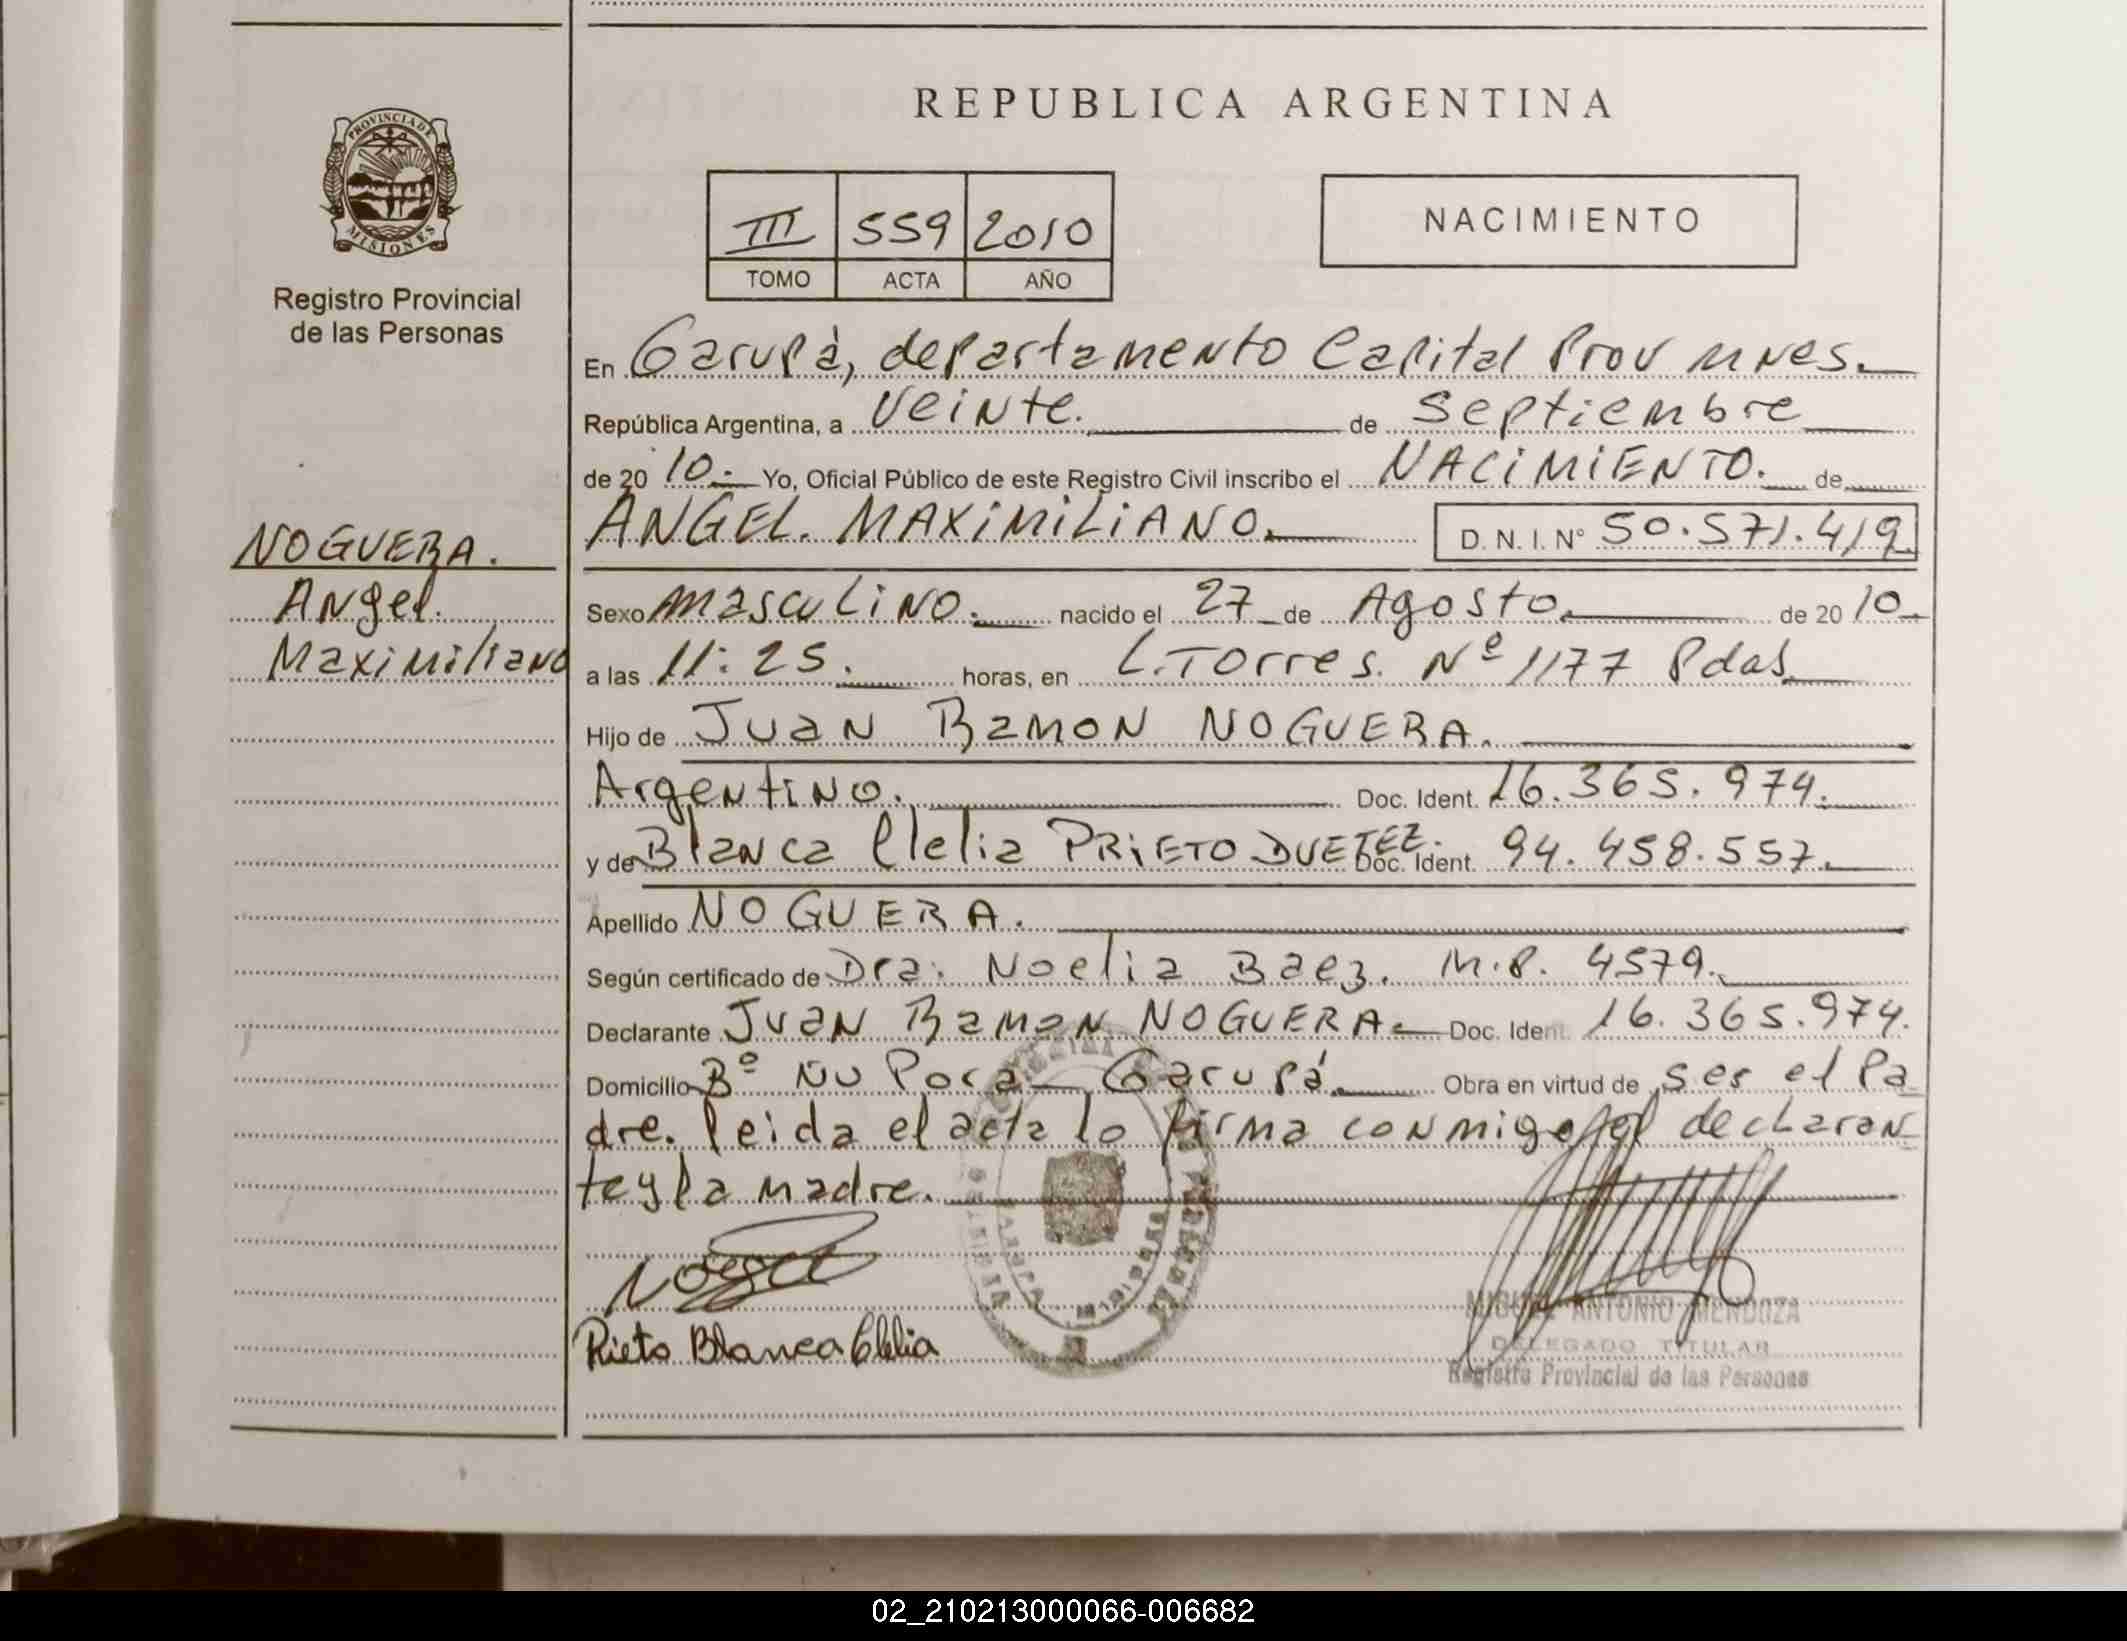 REPUBLICA ARGENTINA
PROVINCIA DE
MISIONES
Registro Provincial
de las Personas
III 559 2010
TOMO ACTA AÑO
NACIMIENTO
En Garupá, departamento Capital Prov Mnes.
República Argentina, a Veinte. de Septiembre
de 20 10.- Yo, Oficial Público de este Registro Civil inscribo el NACIMIENTO. de
NOGUERA.
Angel.
Maximiliano
ANGEL. MAXIMILIANO. D. N. I. N° 50.571.419
Sexo masculino. nacido el 27 de Agosto. de 20 10.
a las 11:25. horas, en L. Torres. Nº 1177 Pdas
Hijo de Juan Ramon NOGUERA.
Argentino. Doc. Ident. 16.365.974.
y de Blanca Clelia PRIETO DUETEZ. Doc. Ident. 94.458.557.
Apellido NOGUERA.
Según certificado de Dra. Noelia Baez. M.P. 4579.
Declarante Juan Ramon NOGUERA. Doc. Ident. 16.365.974.
Domicilio Bº Ñu Pora - Garupá. Obra en virtud de ser el Pa
dre. leida el acta lo firma conmigo el declaran
te y la madre.
Prieto Blanca Clelia
MIGUEL ANTONIO MENDOZA
DELEGADO TITULAR
Registro Provincial de las Personas
02_210213000066-006682